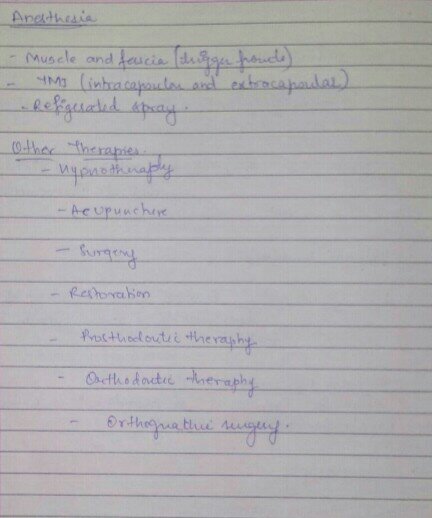 Anesthesia
- Muscle and fascia (trigger points)
- TMJ (intracapsular and extracapsular)
- Refrigerated spray.
Other Therapies.
- Hypnotheraphy
- Acupuncture
- Surgery
- Restoration
- Prosthodontic theraphy
- Orthodontic theraphy
- Orthognathic surgery.